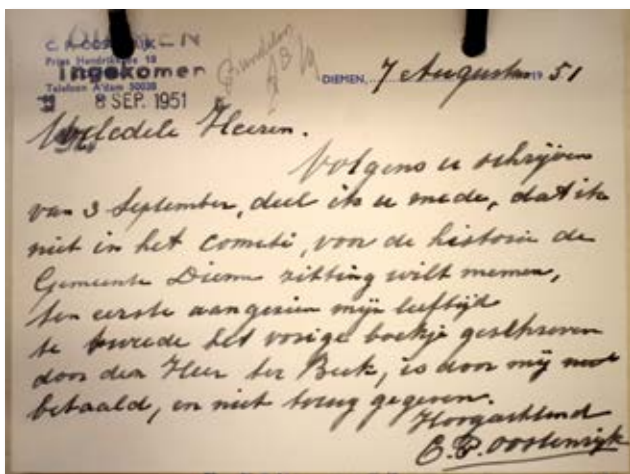 C. P. OOSTENRIJK
Prins Hendrikkade 18
Ingekomen
Telefoon A'dam 50028
8 SEP. 1951
DIEMEN, 7 Augustus 19 51
Weledele Heeren.
Volgens u schrijven
van 3 September, deel ik u mede, dat ik
niet in het comité, voor de historie de
Gemeente Diemen zitting wilt nemen,
ten eerste aangezien mijn leeftijd
te tweede het vorige boekje geschreven
door den Heer ter Beek, is door mij
betaald, en niet terug gegeven.
Hoogachtend
C. P. Oostenrijk